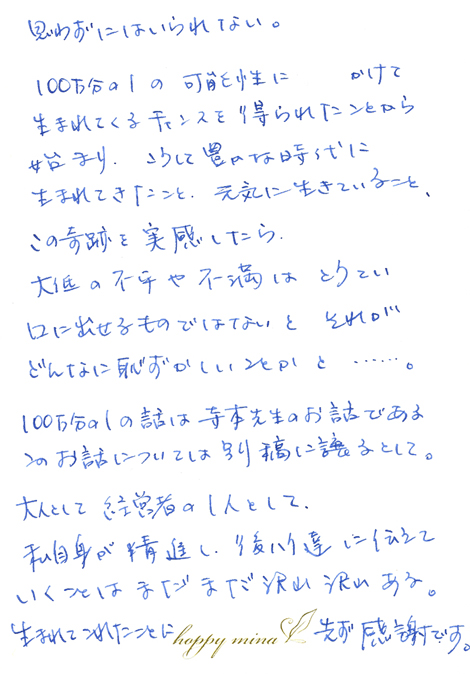 思わずにはいられない。
100万分の1の可能性に かけて
生まれてくるチャンスを得られたことから
始まり、こうして豊かな時代に
生まれてきたこと、元気に生きていること、
この奇跡を実感したら、
大低の不平や不満は とうてい
口に出せるものではないと それが
どんなに恥ずかしいことかと ……。
100万分の1の話は寺本先生のお話である
このお話については別稿に譲るとして。
大人として 経営者の1人として、
私自身が精進し、後輩達に伝えて
いくことは まだまだ沢山沢山ある。
生まれてこれたことに happy mina 先ず感謝です。